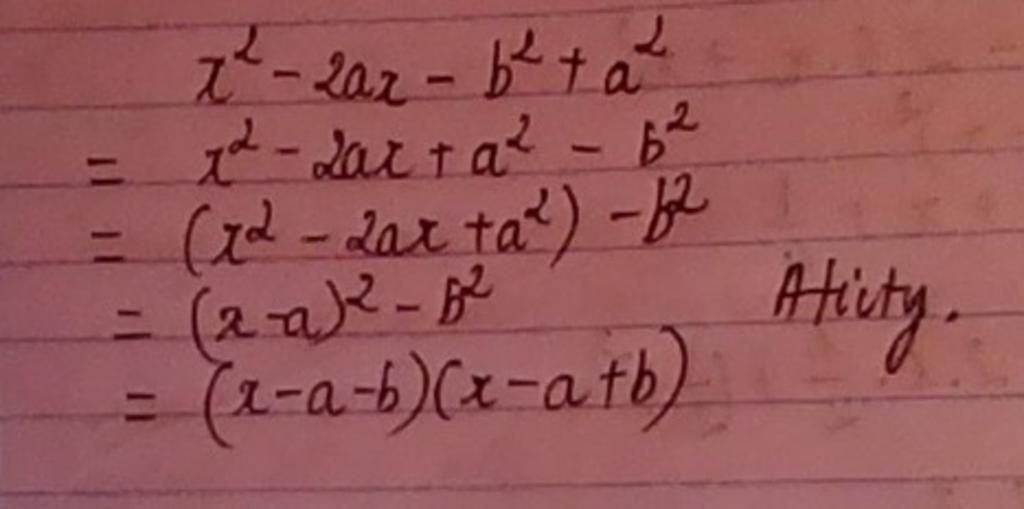 x² - 2ax - b² + a²
= x² - 2ax + a² - b²
= (x² - 2ax + a²) - b²
= (x - a)² - b²
= (x - a - b)(x - a + b)